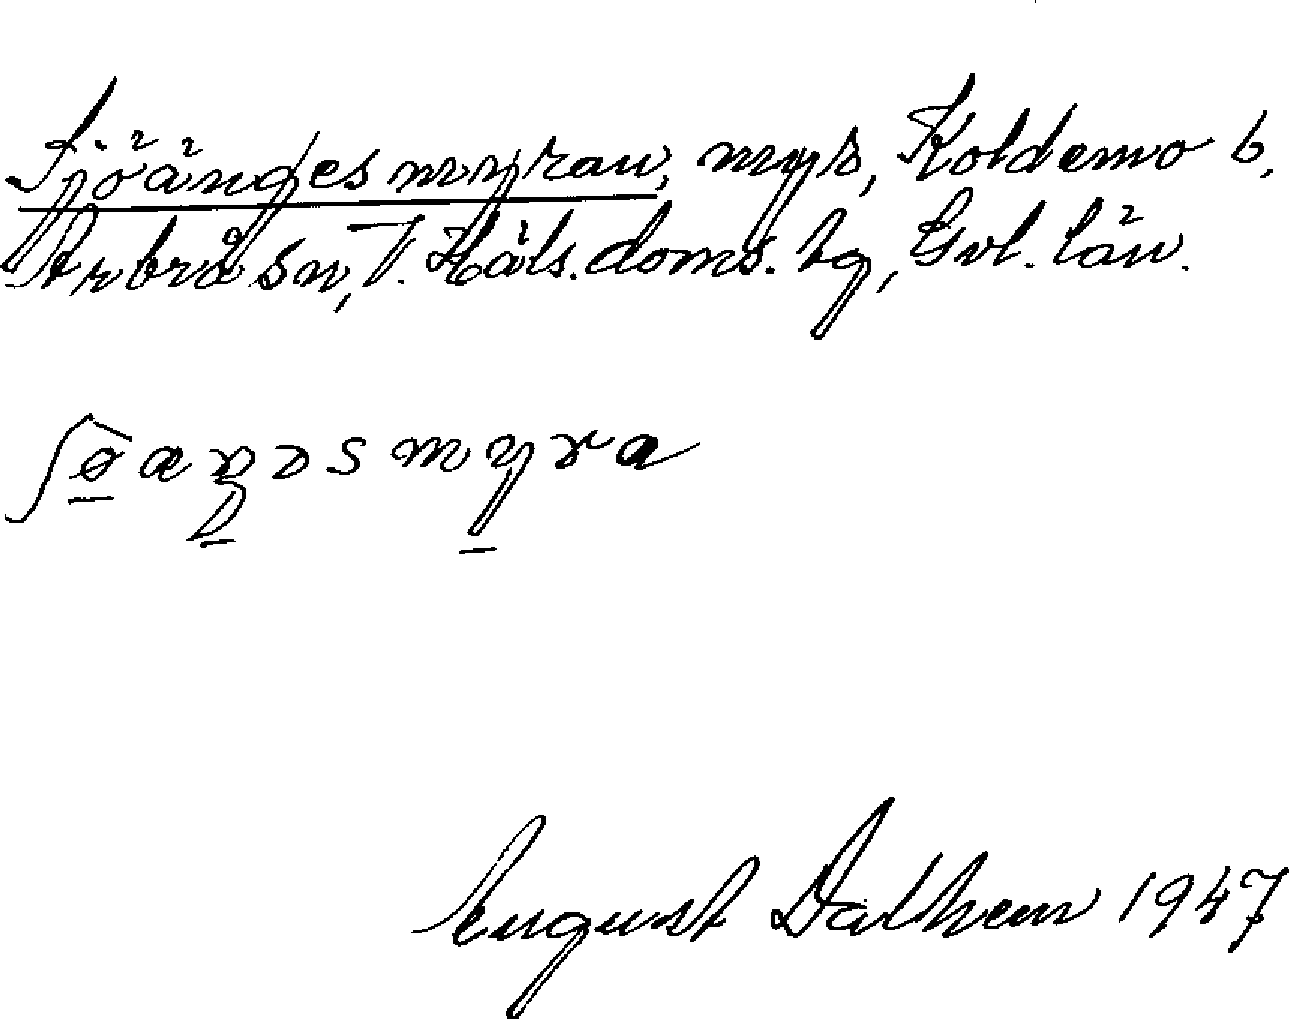 Sjöängesmyran, myr, Koldemo b,
Arbrå sn, V. Häls. doms. tg, Gvl. län.
August Dalhem 1947